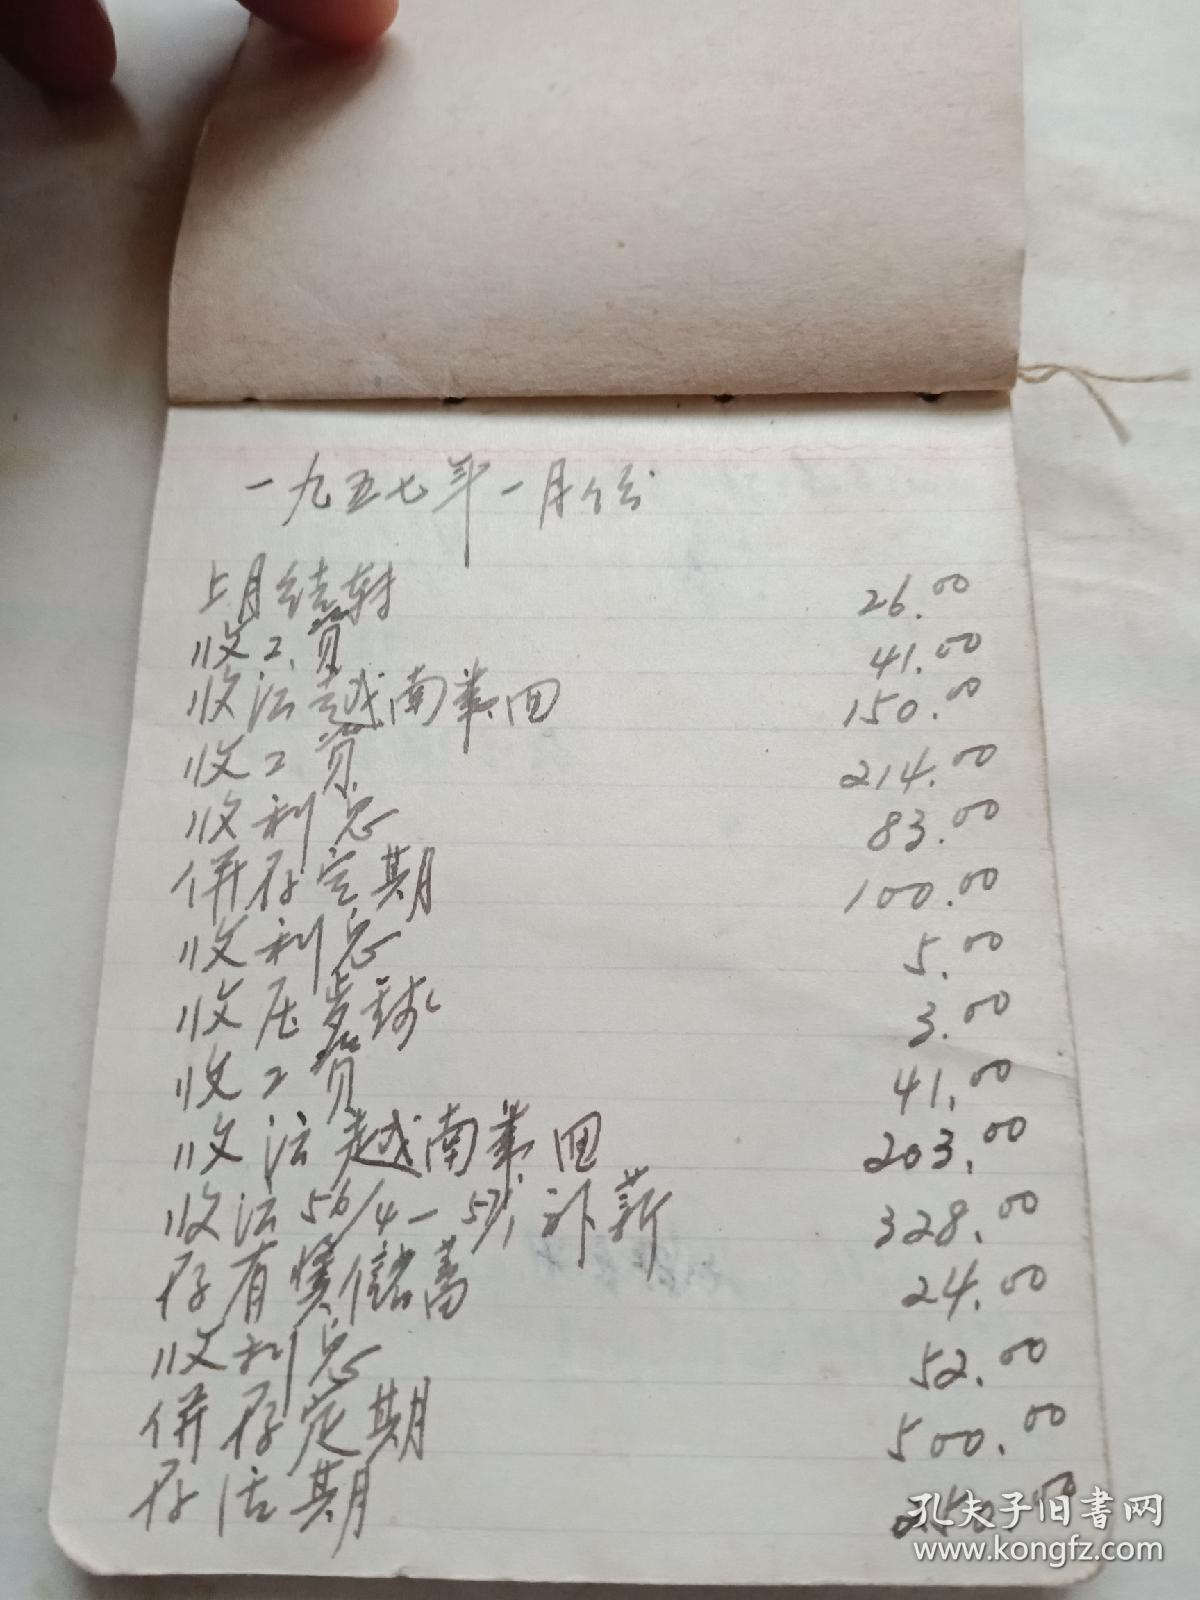 一九五七年一月份
上月结转 26.00
收工資 41.00
收法越南第四 150.00
收工資 214.00
收利息 83.00
併存定期 100.00
收利息 5.00
收压歲錢 3.00
收工資 41.00
收法越南第四 203.00
收法56/4一57/1补薪 328.00
存有獎儲蓄 24.00
收利息 52.00
併存定期 500.00
存活期
孔夫子旧書网
www.kongfz.com